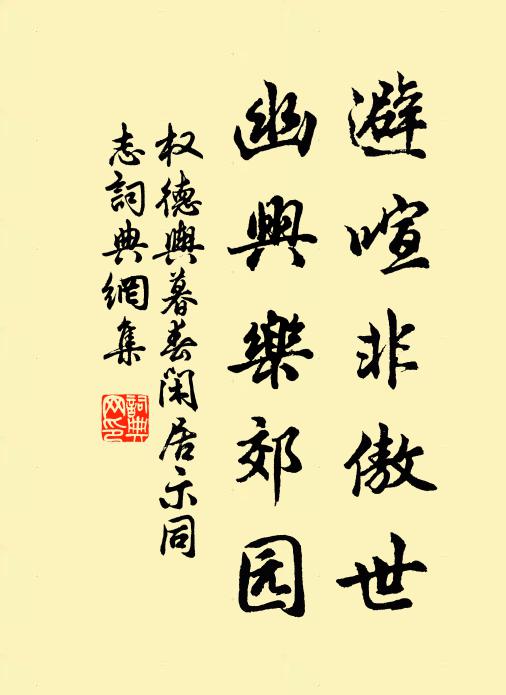 避喧非傲世
幽興樂郊园
权德輿暮春閑居示同
志詞典網集
詞典
网印